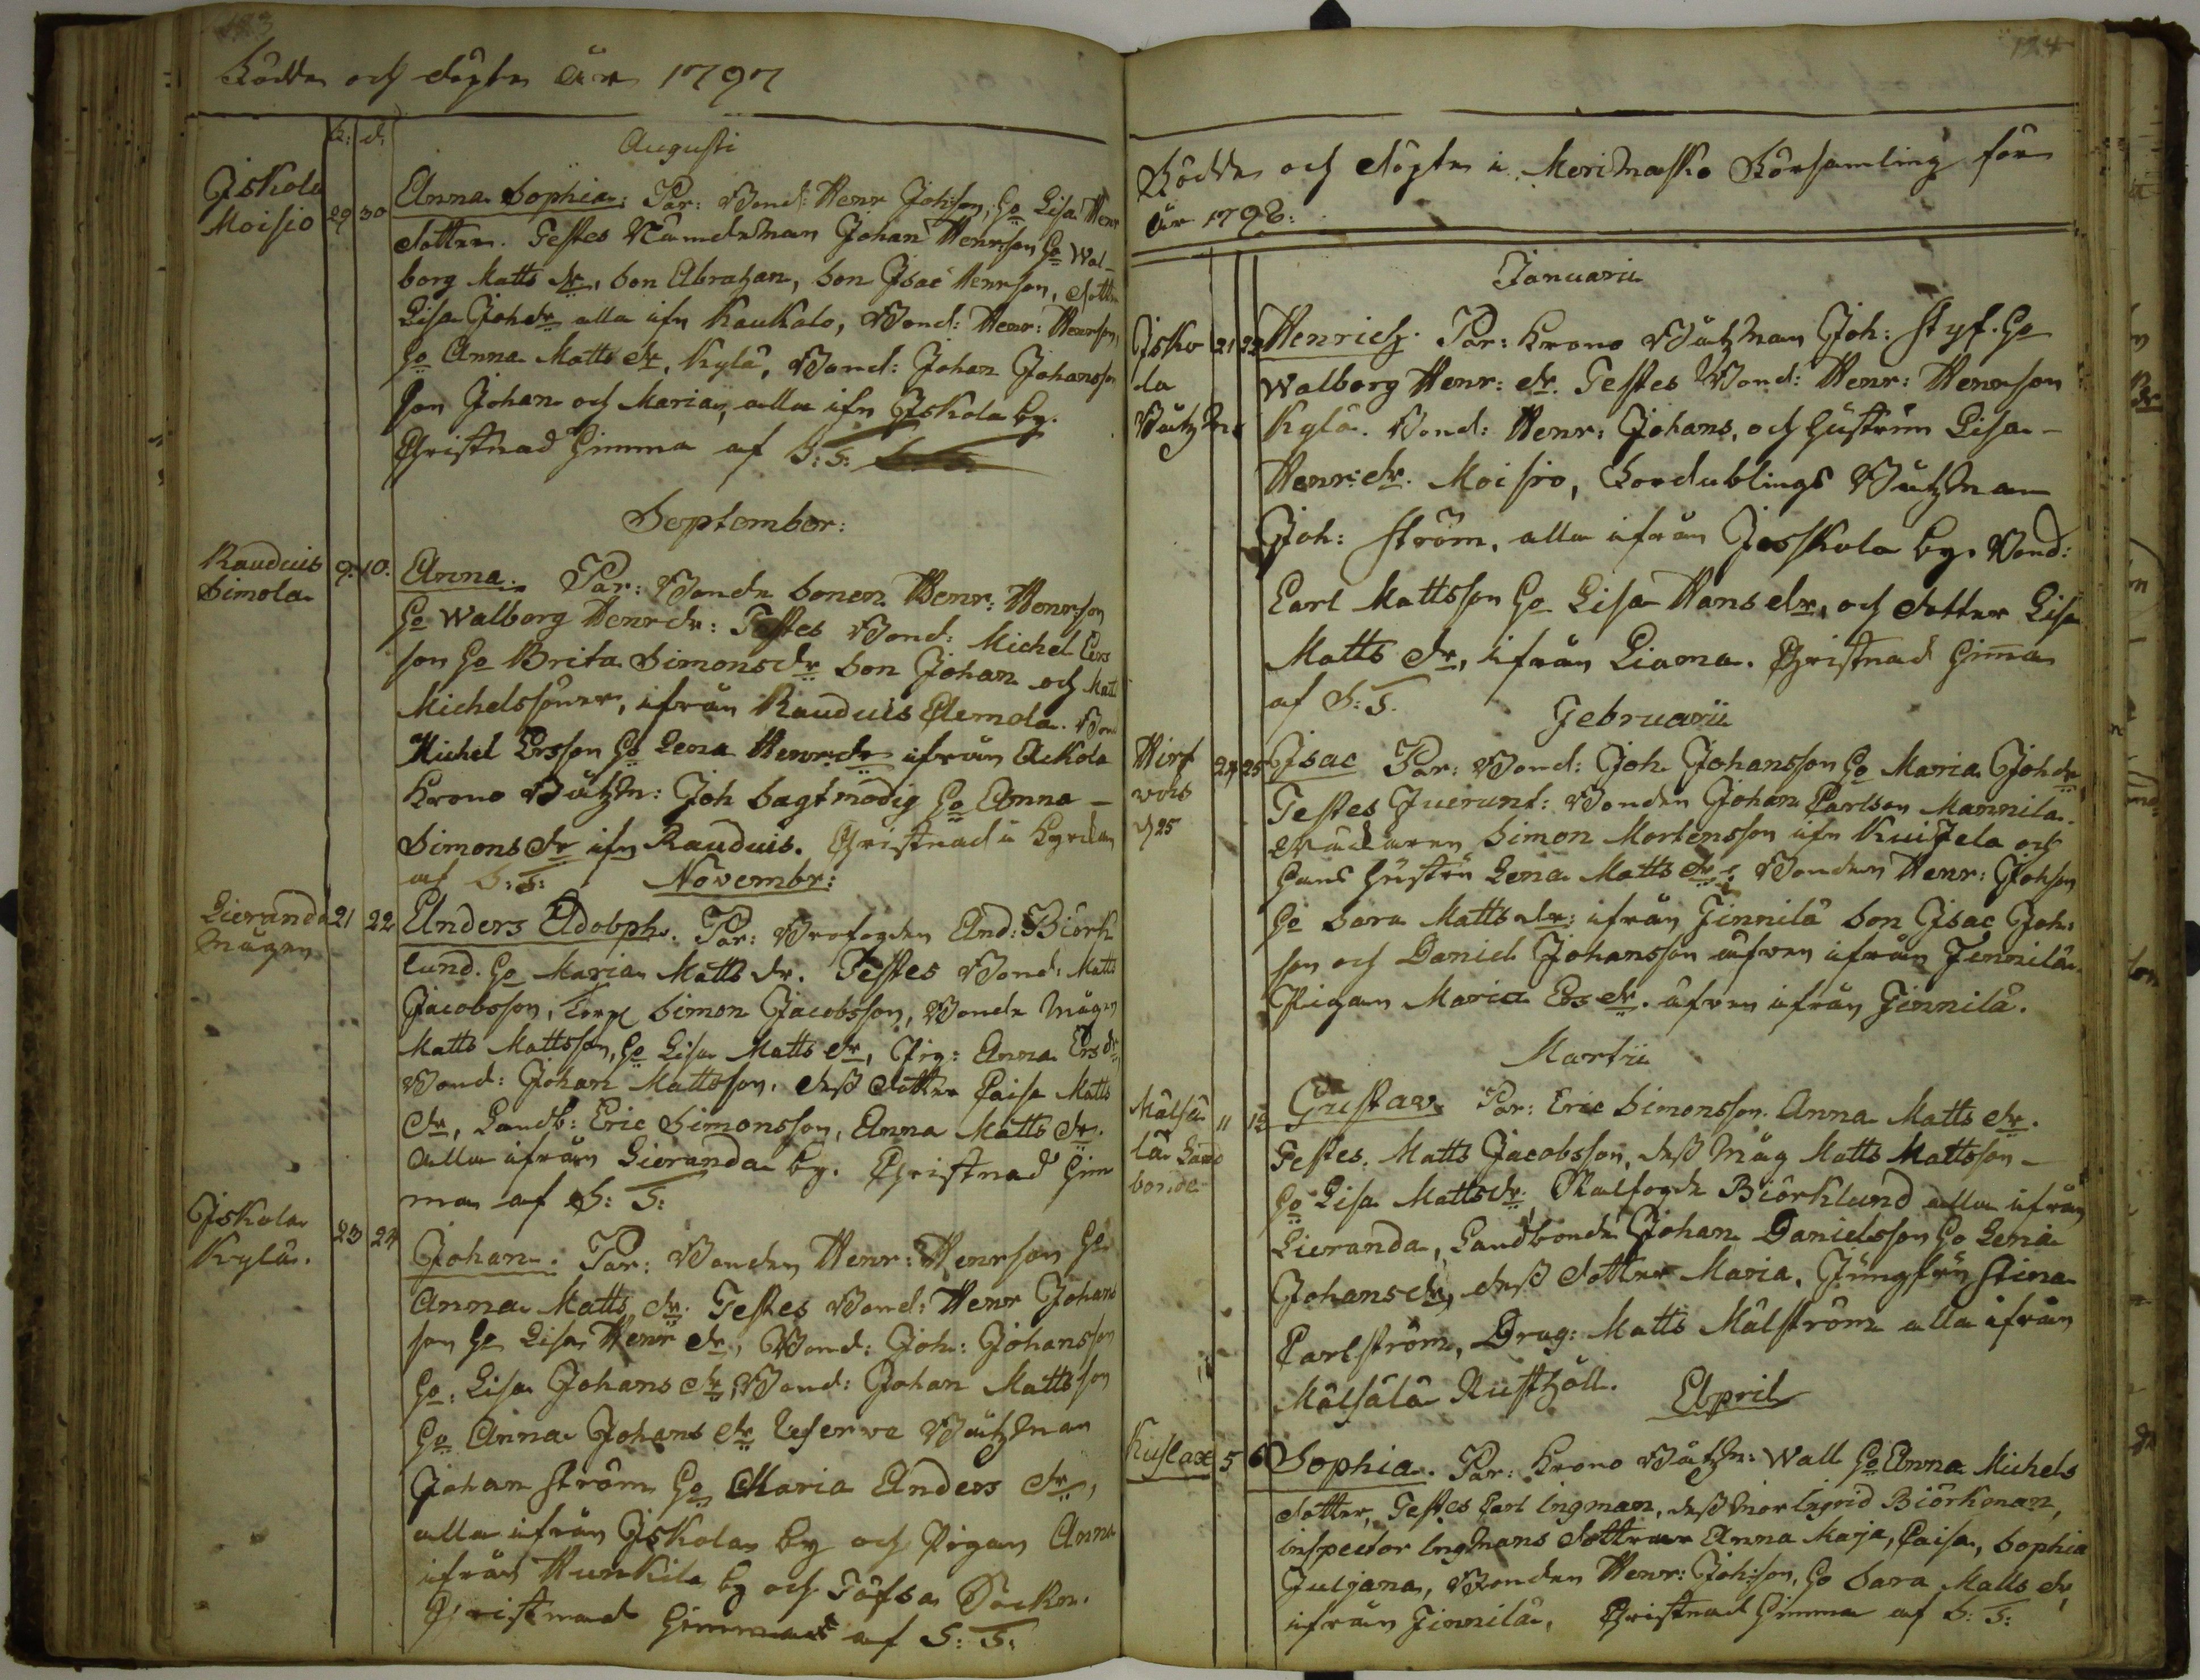 123
Födde och döpte År 1797
F: d.
Augusti
Jskola Moisio 29 30 Anna Sophia: Par: Bond: Henr Johsson, Ho Lisa Henr
dotter. Testes Nämdeman Johan Henrsson Ho Wal-
borg Matts dr, Son Abraham, Son Isac Henrson, dott
Lisa Johdr alla ifn Kaukola, Bond: Henr: Henrson,
Ho Anna Matts dr, Kylä, Bond: Johan Johansson
son Johan och Maria, alla ifn Jskola by.
Christnad hemma af S: T:
September:
Rauduis Simola 9. 10. Anna. Par: Bonde Sonen Henr: Henrson
Ho Walborg Henrdr: Testes Bond: Michel Ers
son Ho Brita Simonsdr Son Johan och Matt
Michelssöner, ifrån Rauduis Bond
Michel Ersson Ho Lena Henrdr ifrån Ackola
Krono Båtzm: Joh Sagtmodig Ho Anna
Simons dr ifn Rauduis. Christnad i Kyrckan
af S: T: Novembr:
Lieranda Mågen 21 22 Anders Adolph. Par: And: Biörk
lund. Ho Maria Matts dr. Testes Bond: Matts
Jacobsson, Simon Jacobsson, Bonde mågen
Matts Mattsson, Ho Lisa Matts dr, Pig: Anna Ers dr
Bond: Johan Mattsson, dess dotter Caisa Matts
dr, Landb: Eric Simonsson, Anna Matts dr.
alla ifrån Lieranda by. Christnad hem
ma af S: T:
Jskola Kylä. 23 24 Johan. Par: Bonden Henr: Henrson Ho
Anna Matts dr. Testes Bond: Henr Johans
son Ho Lisa Henr dr, Bond: Joh: Johansson
Ho: Lisa Johans dr, Bond: Johan Mattsson
Ho Anna Johans dr Reserve Båtzman
Johan Ström Ho Maria Anders dr,
alla ifrån Jskola by och Pigan Anna
ifrån Hunkila by och Töfsa Sockn.
Christnad hemma af S: T:
124
Födde och döpte i Merimasko Församling för
År 1798:
Januarii
Jsko la Båtzm 21 22 Henrich. Par: Krono Båtzman Joh: Styf. Ho
Walborg Henr: dr. Testes Bond: Henr: Henrson
Kylä. Bond: Henr: Johans, och hustrun Lisa
Henr: dr. Moisio, Fördublings Båtzman
Joh: Ström, alla ifrån Jesskola by. Bond:
Carl Mattsson Ho Lisa Hans dr, och dotter Lisa
Matts dr, ifrån Liama. Christnad hemma
af S: T.
Februarii
Hirf vois 24 25 Isac Par: Bond: Joh. Johansson Ho Maria Joh dr
d 25 Testes fuerunt: Bonden Johan Carlson Mannila.
Simon Mortensson ifn Kuifela och
hans hustru Lena Matts dr, Bonden Henr: Johson
Ho Sara Matts dr: ifrån Finnilä Son Isac Joh:
son och Daniel Johansson äfven ifrån Finnilä.
Pigan Maria Ers dr. äfven ifrån Finnilä.
Martii
Mälsä lä Land bonde 11 13 Gustav. Par: Eric Simonsson. Anna Matts dr.
Testes. Matts Jacobsson, dess måg Matts Mattsson
Ho Lisa Mattsdr: Biörklund alla ifrån
Lieranda, Landbonde Johan Danielsson Ho Lena
Johansdr, dess dotter Maria, Jungfru Stina
Carlström, Drag: Matts Målström alla ifrån
Mälsälä Rusthåll.
April
Kuslax 5 6 Sophia. Par: Krono Båtzm: Wall Ho Anna Michels
dotter, Testes Carl Ingman, dess mor Ingrid Biörkman,
inspector Ingmans döttrar Anna Maja, Caisa, Sophia
Juljana, Bonden Henr: Johsson, Ho Sara Matts dr,
ifrån Finnilä. Christnad hemma af S: T: